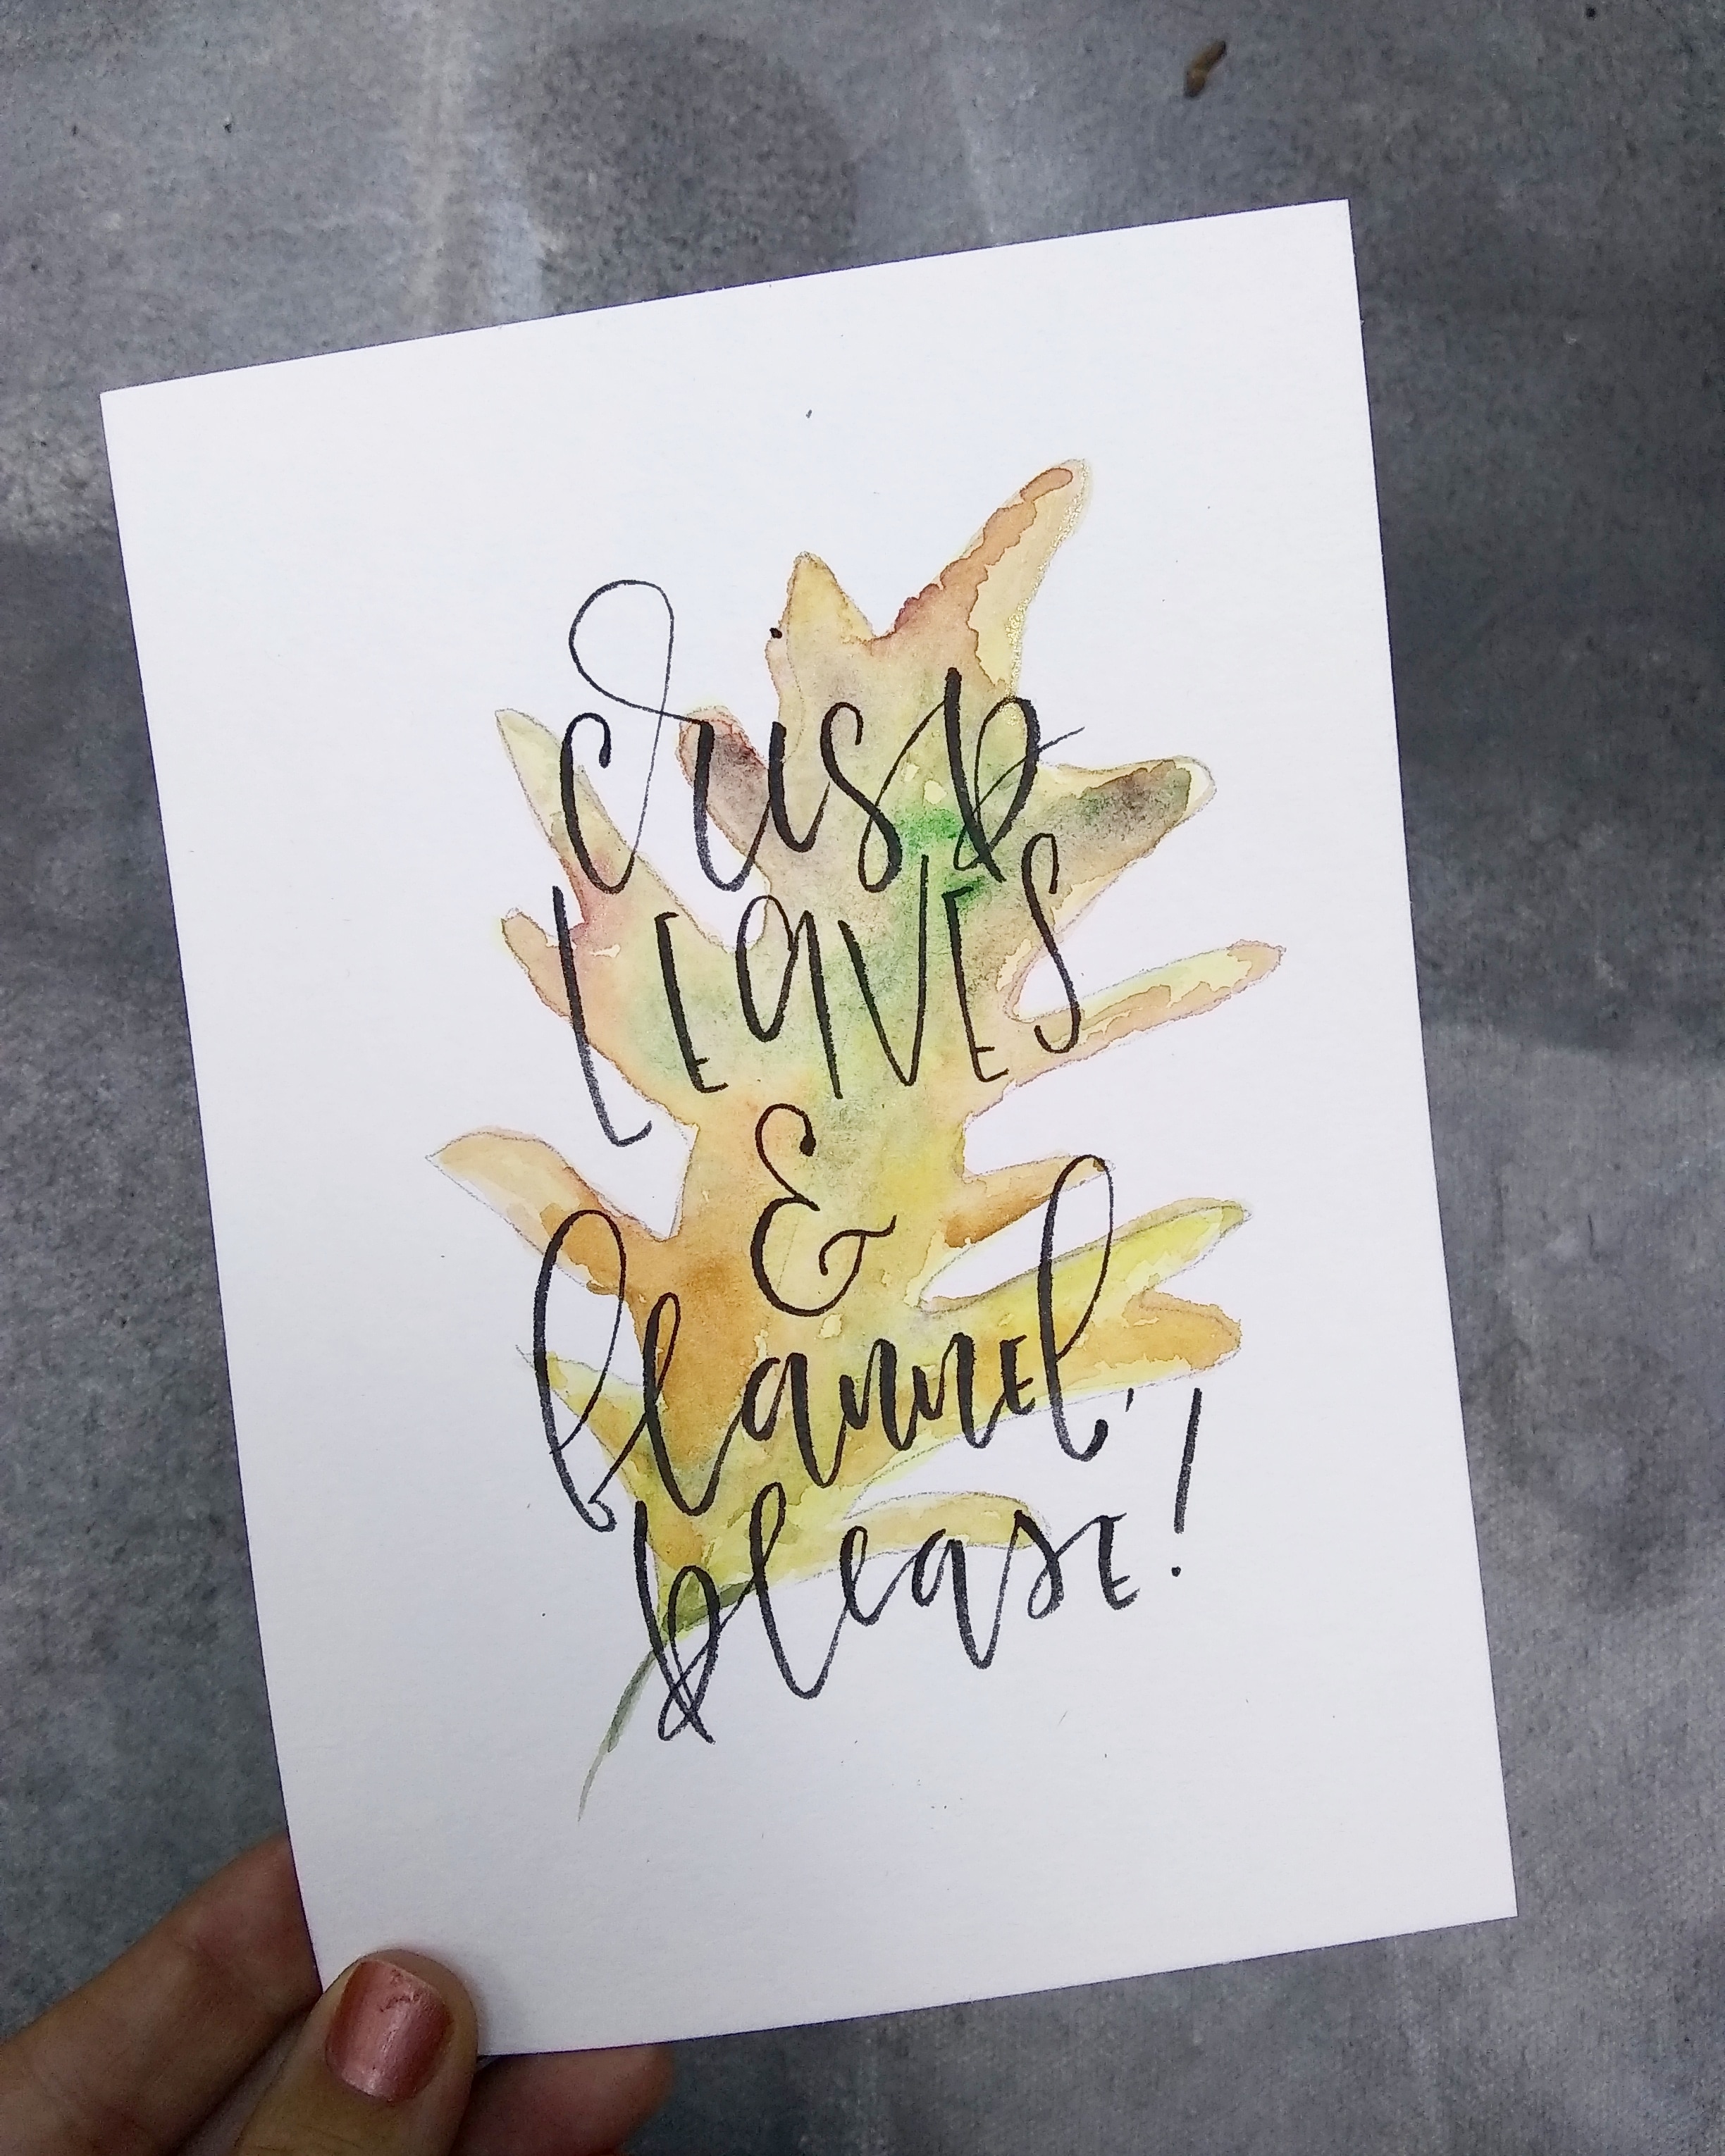 crisp
LEAVES
&
flannel,
please!